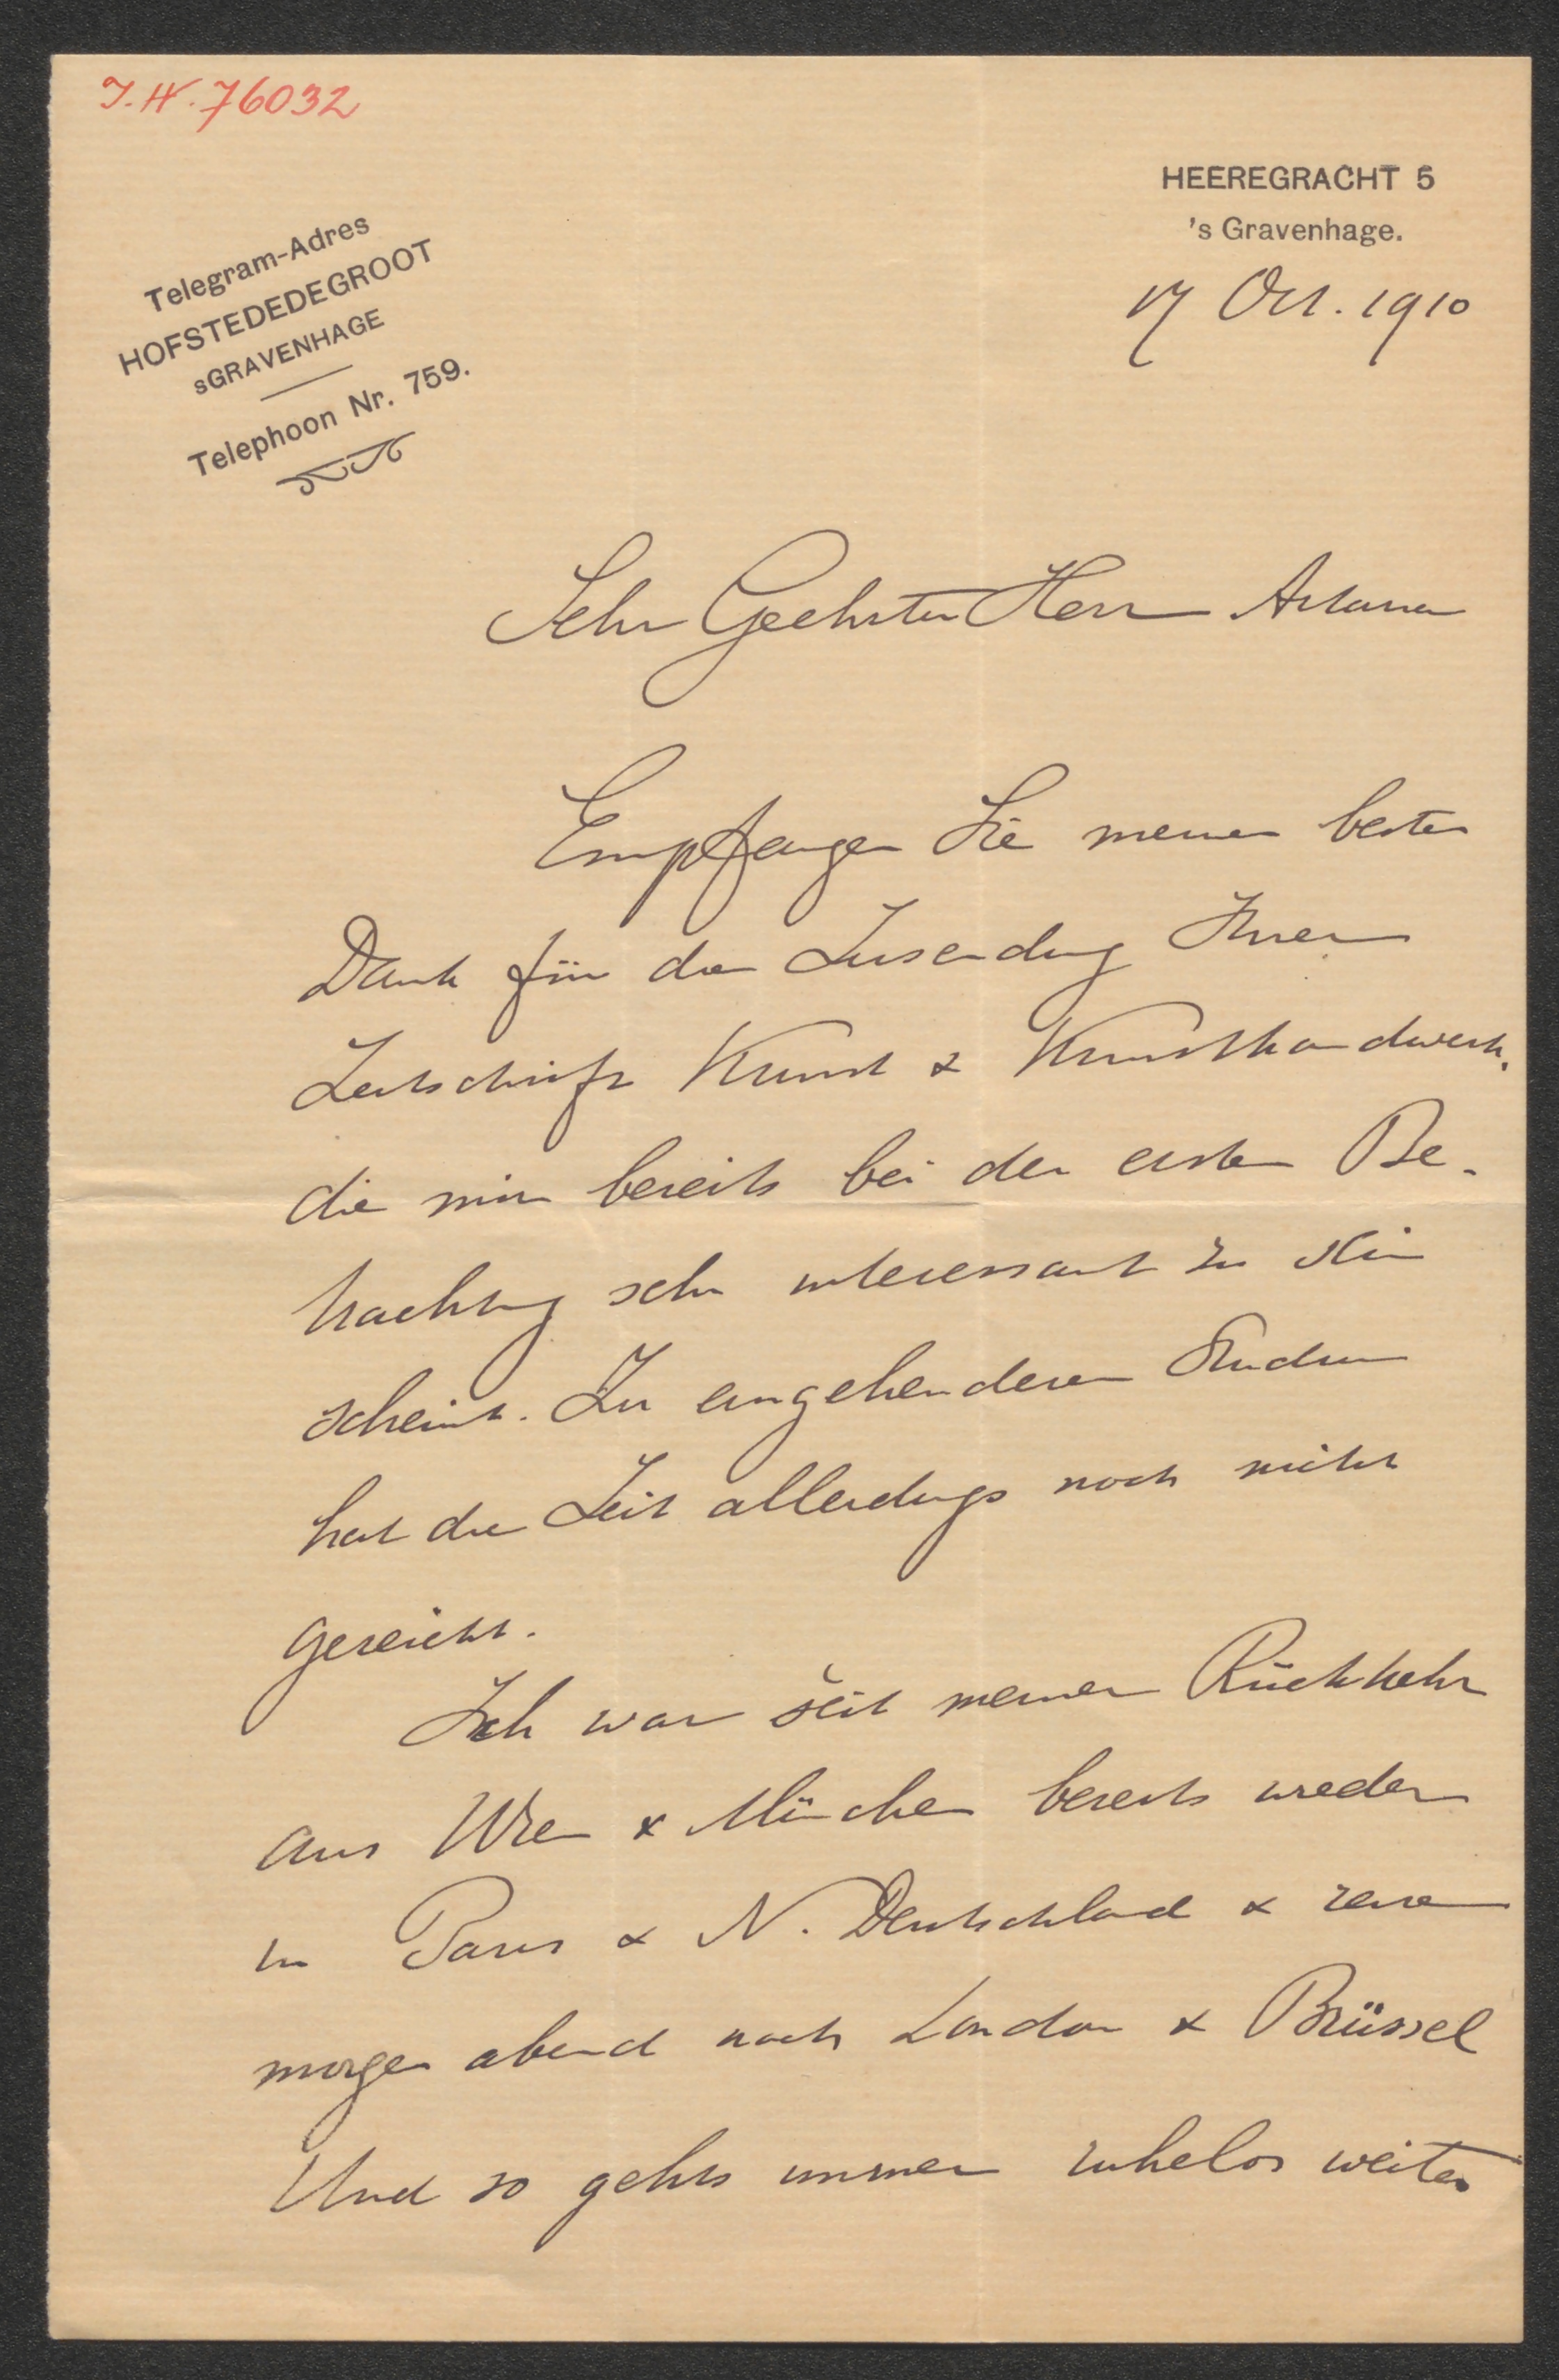 I.N. 76032
HEEREGRACHT 5
's Gravenhage.
Telegram-Adres
HOFSTEDEDEGROOT
sGRAVENHAGE
Telephoon Nr. 759.
17 Oct. 1910
Sehr Geehrter Herr
Empfangen Sie meinen besten
Dank für die Zusendung Ihrer
Zeitschrift Kunst & Kunsthandwerk.
die mir bereits bei der ersten Be-
trachtung sehr interessant zu sein
scheint. Zu eingehenderem Studium
hat die Zeit allerdings noch nicht
gereicht.
Ich war seit meiner Rückkehr
aus Wien & München bereits wieder
in Paris & N. Deutschland & reise
morgen abend nach London & Brüssel
Und so gehts immer ruhelos weiter